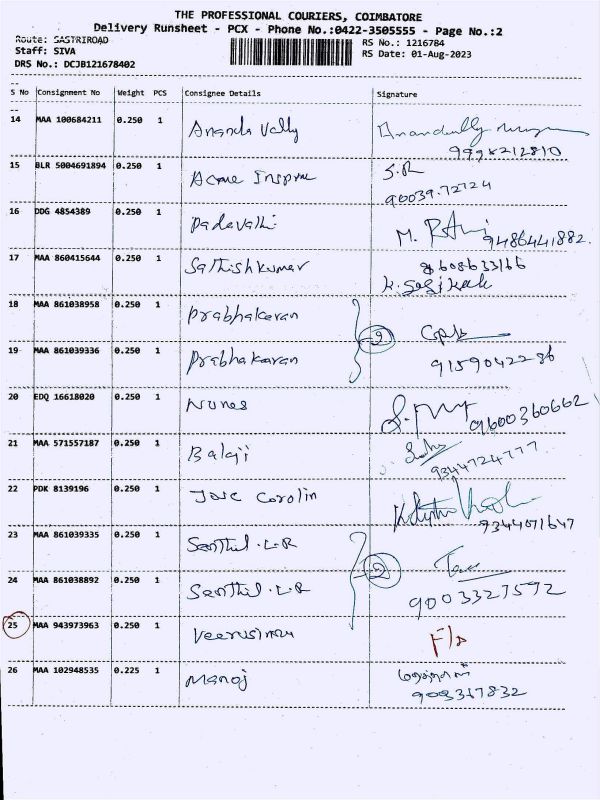 THE PROFESSIONAL COURIERS, COIMBATORE
Delivery Runsheet - PCX - Phone No.:0422-3505555 - Page No.:2
Route: SASTRIROAD
RS No.: 1216784
Staff: SIVA
RS Date: 01-Aug-2023
DRS No.: DCJB121678402
S No Consignment No Weight PCS Consignee Details Signature
14 MAA 100684211 0.250 1 Ananda Vally
9998212810
15 BLR 5004691894 0.250 1 Acme S.R
90039.72724
16 DDG 4854389 0.250 1 Padavathi M. Rani 9486441882.
17 MAA 860415644 0.250 1 Sathishkumar 8608633166
18 MAA 861038958 0.250 1 Prabhakaran
2
19 MAA 861039336 0.250 1 Prabhakaran 9159042286
20 EDQ 16618020 0.250 1 Nunes 9600360662
21 MAA 571557187 0.250 1 Balaji 9344724777
22 PDK 8139196 0.250 1 Jose Carolin
9344071647
23 MAA 861039335 0.250 1 Senthil.L.R
2
24 MAA 861038892 0.250 1 Senthil.L.R 9003327592
25 MAA 943973963 0.250 1 F/s
26 MAA 102948535 0.225 1 Manoj